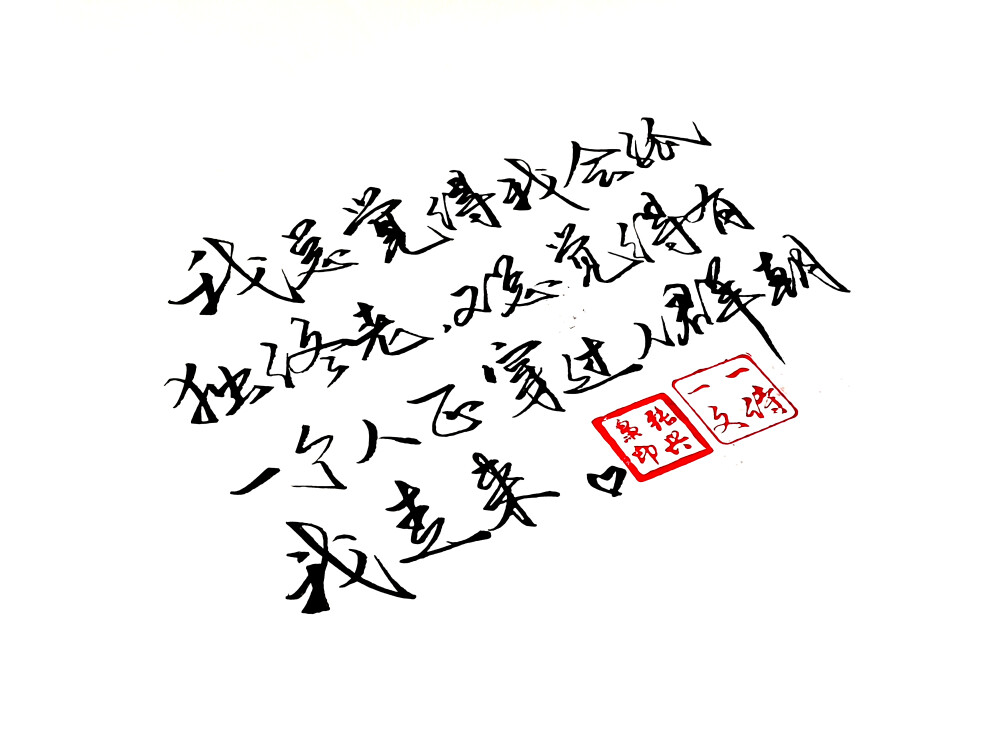 我总觉得我会终
独终老，又总觉得有
一个人正穿过人群朝
我走来
张兴
印
一一
文诗